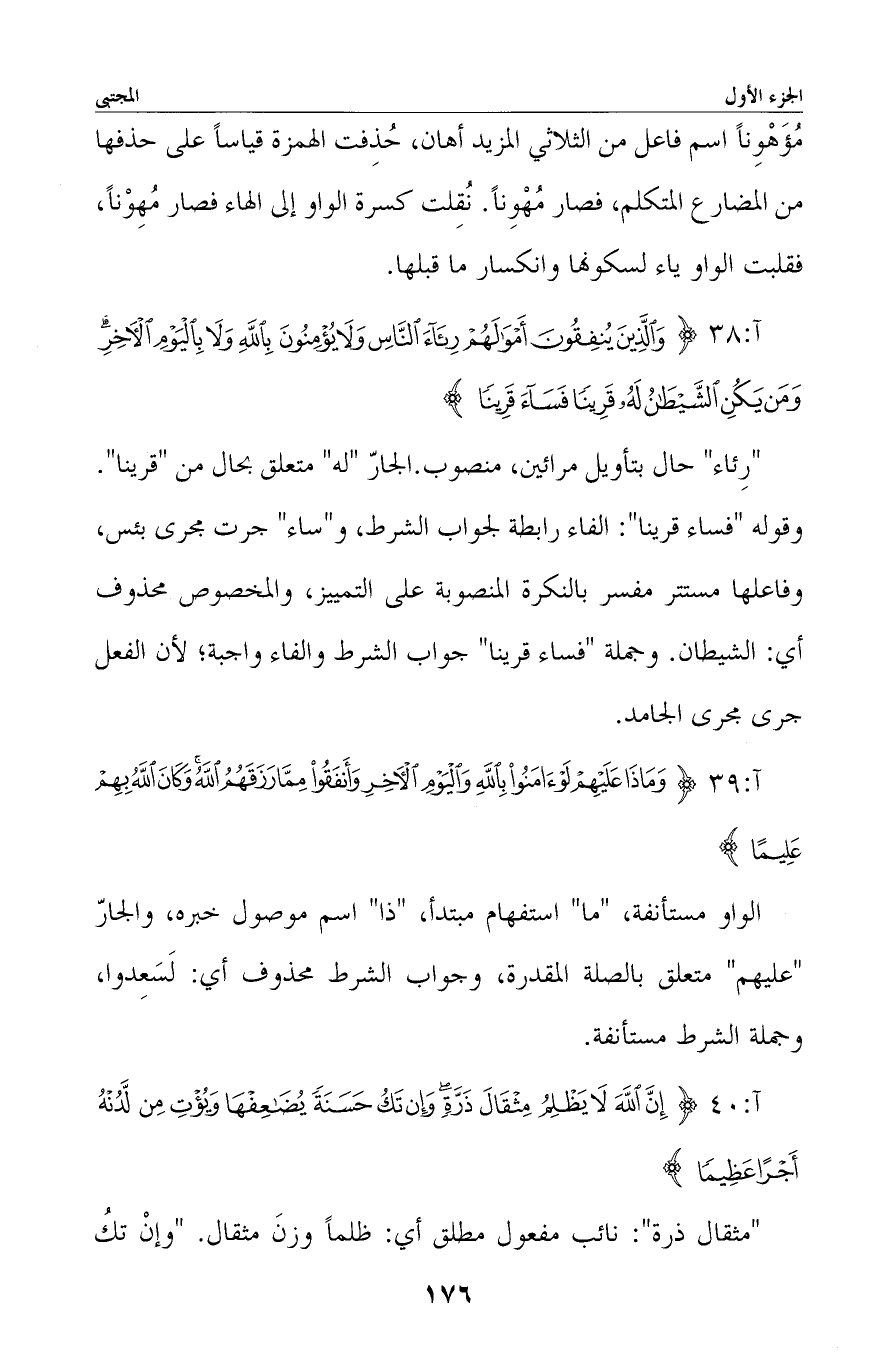 الجزء الأول المجتبى
مُؤَهْوِناً اسم فاعل من الثلاثي المزيد أهان، حُذِفت الهمزة قياساً على حذفها
من المضارع المتكلم، فصار مُهْوِناً. نُقِلت كسرة الواو إلى الهاء فصار مُهِوْناً،
فقلبت الواو ياء لسكونها وانكسار ما قبلها.
آ:٣٨ ﴿ وَٱلَّذِينَ يُنفِقُونَ أَمْوَٰلَهُمْ رِئَآءَ ٱلنَّاسِ وَلَا يُؤْمِنُونَ بِٱللَّهِ وَلَا بِٱلْيَوْمِ ٱلْأَخِرِۗ
وَمَن يَكُنِ ٱلشَّيْطَٰنُ لَهُۥ قَرِينًا فَسَآءَ قَرِينًا ﴾
"رِئاء" حال بتأويل مرائين، منصوب.الجارّ "له" متعلق بحال من "قرينا".
وقوله "فساء قرينا": الفاء رابطة لجواب الشرط، و"ساء" جرت مجرى بئس،
وفاعلها مستتر مفسر بالنكرة المنصوبة على التمييز، والمخصوص محذوف
أي: الشيطان. وجملة "فساء قرينا" جواب الشرط والفاء واجبة؛ لأن الفعل
جرى مجرى الجامد.
آ:٣٩ ﴿ وَمَاذَا عَلَيْهِمْ لَوْ ءَامَنُوا۟ بِٱللَّهِ وَٱلْيَوْمِ ٱلْأَخِرِ وَأَنفَقُوا۟ مِمَّا رَزَقَهُمُ ٱللَّهُۚ وَكَانَ ٱللَّهُ بِهِمْ
عَلِيمًا ﴾
الواو مستأنفة، "ما" استفهام مبتدأ، "ذا" اسم موصول خبره، والجارّ
"عليهم" متعلق بالصلة المقدرة، وجواب الشرط محذوف أي: لَسَعِدوا،
وجملة الشرط مستأنفة.
آ:٤٠ ﴿ إِنَّ ٱللَّهَ لَا يَظْلِمُ مِثْقَالَ ذَرَّةٍۖ وَإِن تَكُ حَسَنَةً يُضَٰعِفْهَا وَيُؤْتِ مِن لَّدُنْهُ
أَجْرًا عَظِيمًا ﴾
"مثقال ذرة": نائب مفعول مطلق أي: ظلماً وزنَ مثقال. "وإنْ تكُ
١٧٦